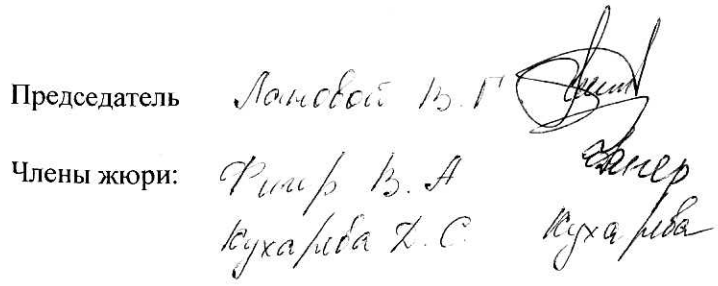 Председатель Лановой В. Г
Члены жюри: Финер В. А
Кухарева Д. С. Кухарева